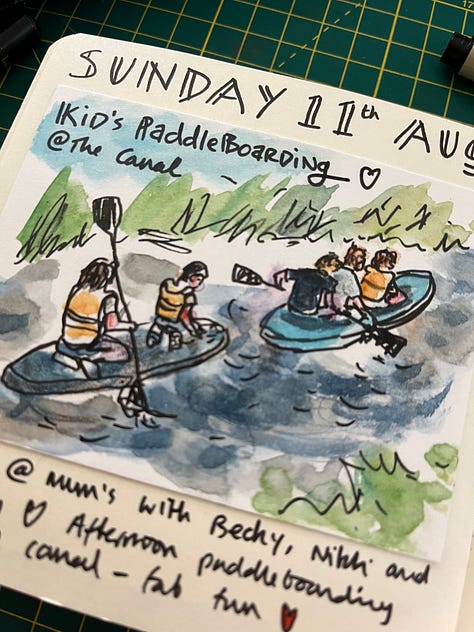 SUNDAY 11th AUG
KiD's PaddleBoarding ♡
@The Canal ~
@ Mum's with Becky, Nikki and
♡ Afternoon paddleboarding
canal - fab fun ♥